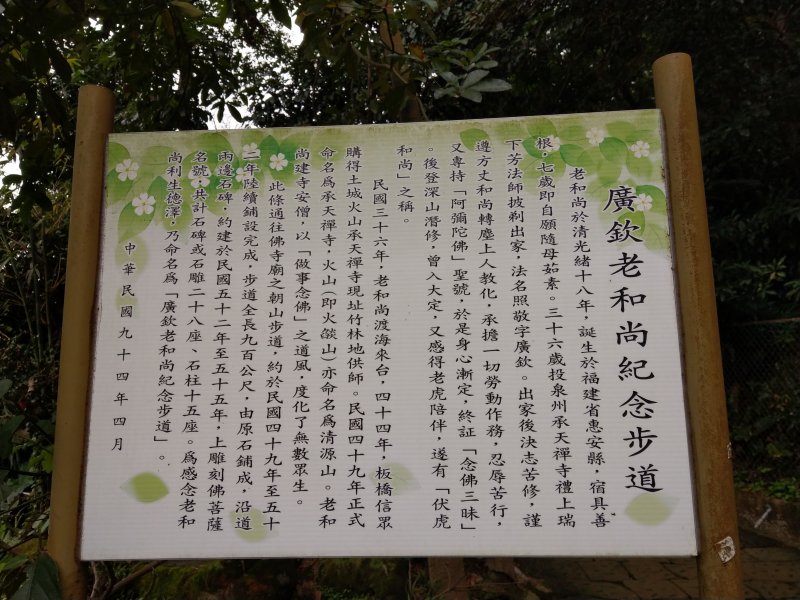 廣欽老和尚紀念步道
老和尚於清光緒十八年，誕生於福建省惠安縣，宿具善
根，七歲即自願隨母茹素。三十六歲投泉州承天禪寺禮上瑞
下芳法師披剃出家，法名照敬字廣欽。出家後決志苦修，謹
遵方丈和尚轉塵上人教化，承擔一切勞動作務，忍辱苦行，
又專持「阿彌陀佛」聖號，於是身心漸定，終証「念佛三昧」
。後登深山潛修，曾入大定，又感得老虎陪伴，遂有「伏虎
和尚」之稱。
民國三十六年，老和尚渡海來台，四十四年，板橋信眾
購得土城火山承天禪寺現址竹林地供師。民國四十九年正式
命名為承天禪寺，火山（即火燄山）亦命名為清源山。老和
尚建寺安僧，以「做事念佛」之道風，度化了無數眾生。
此條通往佛寺廟之朝山步道，約於民國四十九年至五十
二年陸續鋪設完成，步道全長九百公尺，由原石鋪成，沿道
兩邊石碑，約建於民國五十二年至五十五年，上雕刻佛菩薩
名號，共計石碑或石雕二十八座、石柱十五座。為感念老和
尚利生德澤，乃命名為「廣欽老和尚紀念步道」。
中華民國九十四年四月